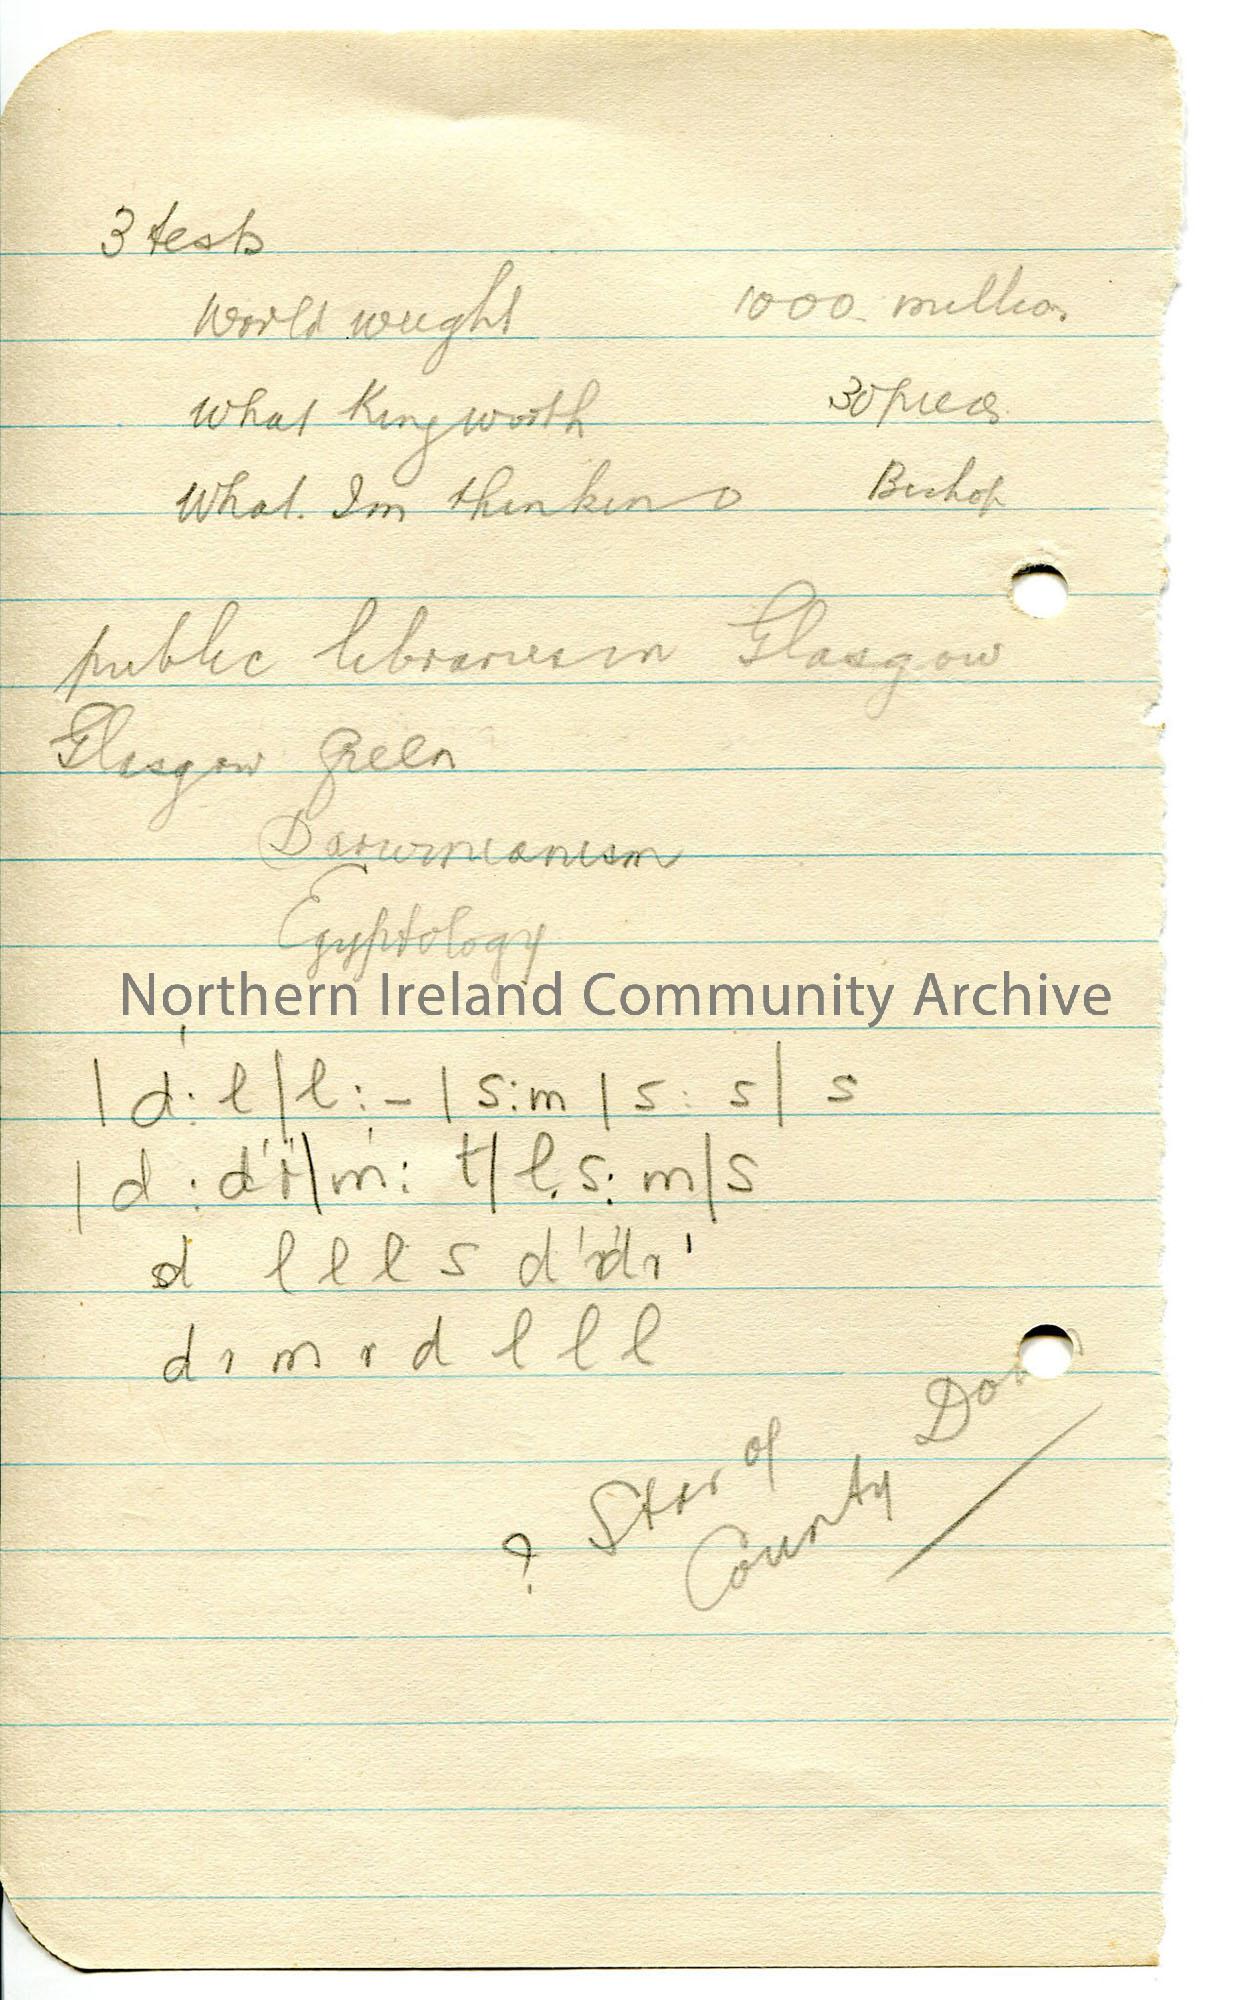 3 tests
World weight 1000 million
What King worth 30 pieces
What Im thinking Bishop
public libraries in Glasgow
Glasgow Green
Darwinianism
Egyptology
Northern Ireland Community Archive
| d' : l | l : - | s : m | s : s | s
| d : d' r' | m' : t | l . s : m | s
d l l l s d' r' d' r'
d r m r d l l l
? Star of
County Down